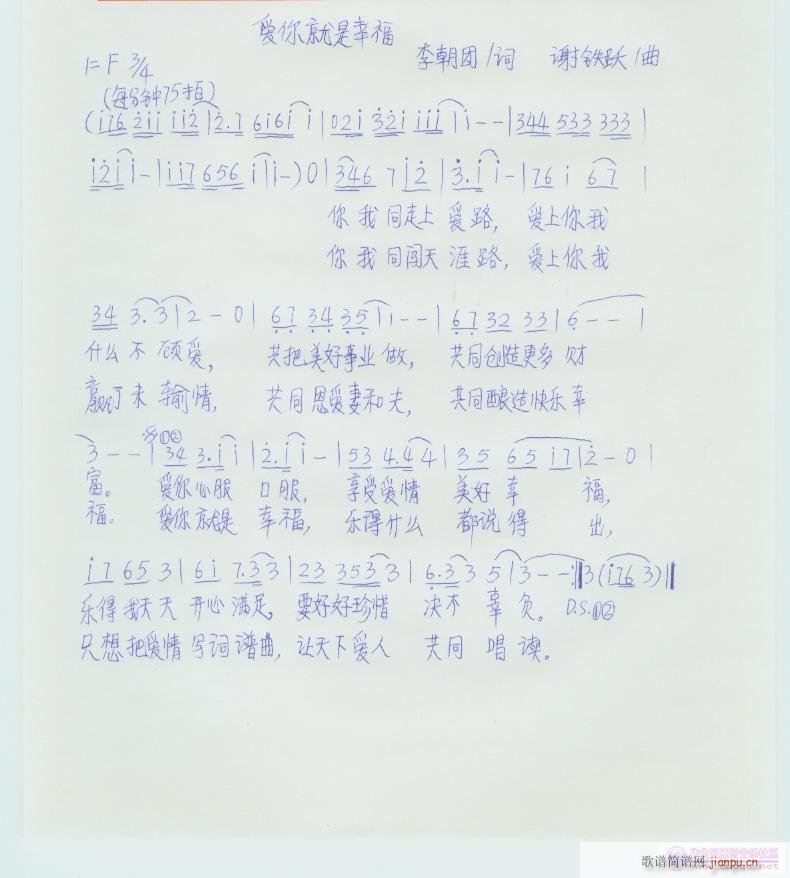 爱你就是幸福
1=F 3/4 李朝团/词 谢铁跃/曲
(每分钟75拍)
(i76 2ii ii2|2.7 6i6i i|02i 32i iii|i--|344 533 333|
i2ii-|ii7 656 i|i-)0|346 7i2|3.ii-|76 i 67|
你我同走上爱路，爱上你我
你我同闯天涯路，爱上你我
34 3.3|2-0|67 34 35|1--|67 32 33|6--|
什么不顾爱，共把美好事业做，共同创造更多财
赢了未输情，共同恩爱妻和夫，共同酿造快乐幸
3--|34 3.ii|2.ii-|53 4.44|35 65 i7|2-0|
富。爱你心服口服，享受爱情美好幸福，
福。爱你就是幸福，乐得什么都说得出，
i7 65 3|6i 7.33|23 353 3|6.33 5|3--:‖3(i76 3)‖
乐得我天天开心满足，要好好珍惜决不辜负。D.S.①②
只想把爱情写词谱曲，让天下爱人共同唱读。
歌谱简谱网 jianpu.cn